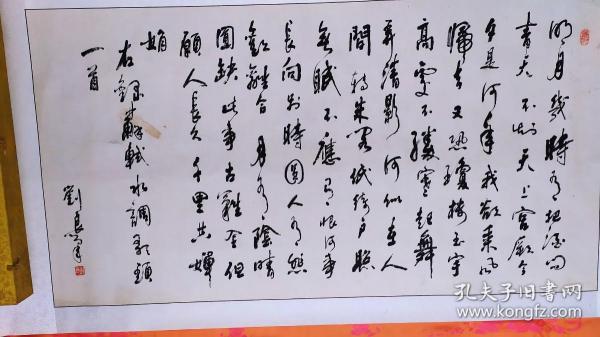 明月幾時有把酒問
青天不知天上宫闕今
夕是何年我欲乘風
歸去又恐瓊樓玉宇
高處不勝寒起舞
弄清影何似在人
間轉朱閣低綺户照
無眠不應有恨何事
長向别時圓人有悲
歡離合月有陰晴
圓缺此事古難全但
願人長久千里共嬋
娟
右録蘇軾水調歌頭
一首
劉
孔夫子旧书网
www.kongfz.com